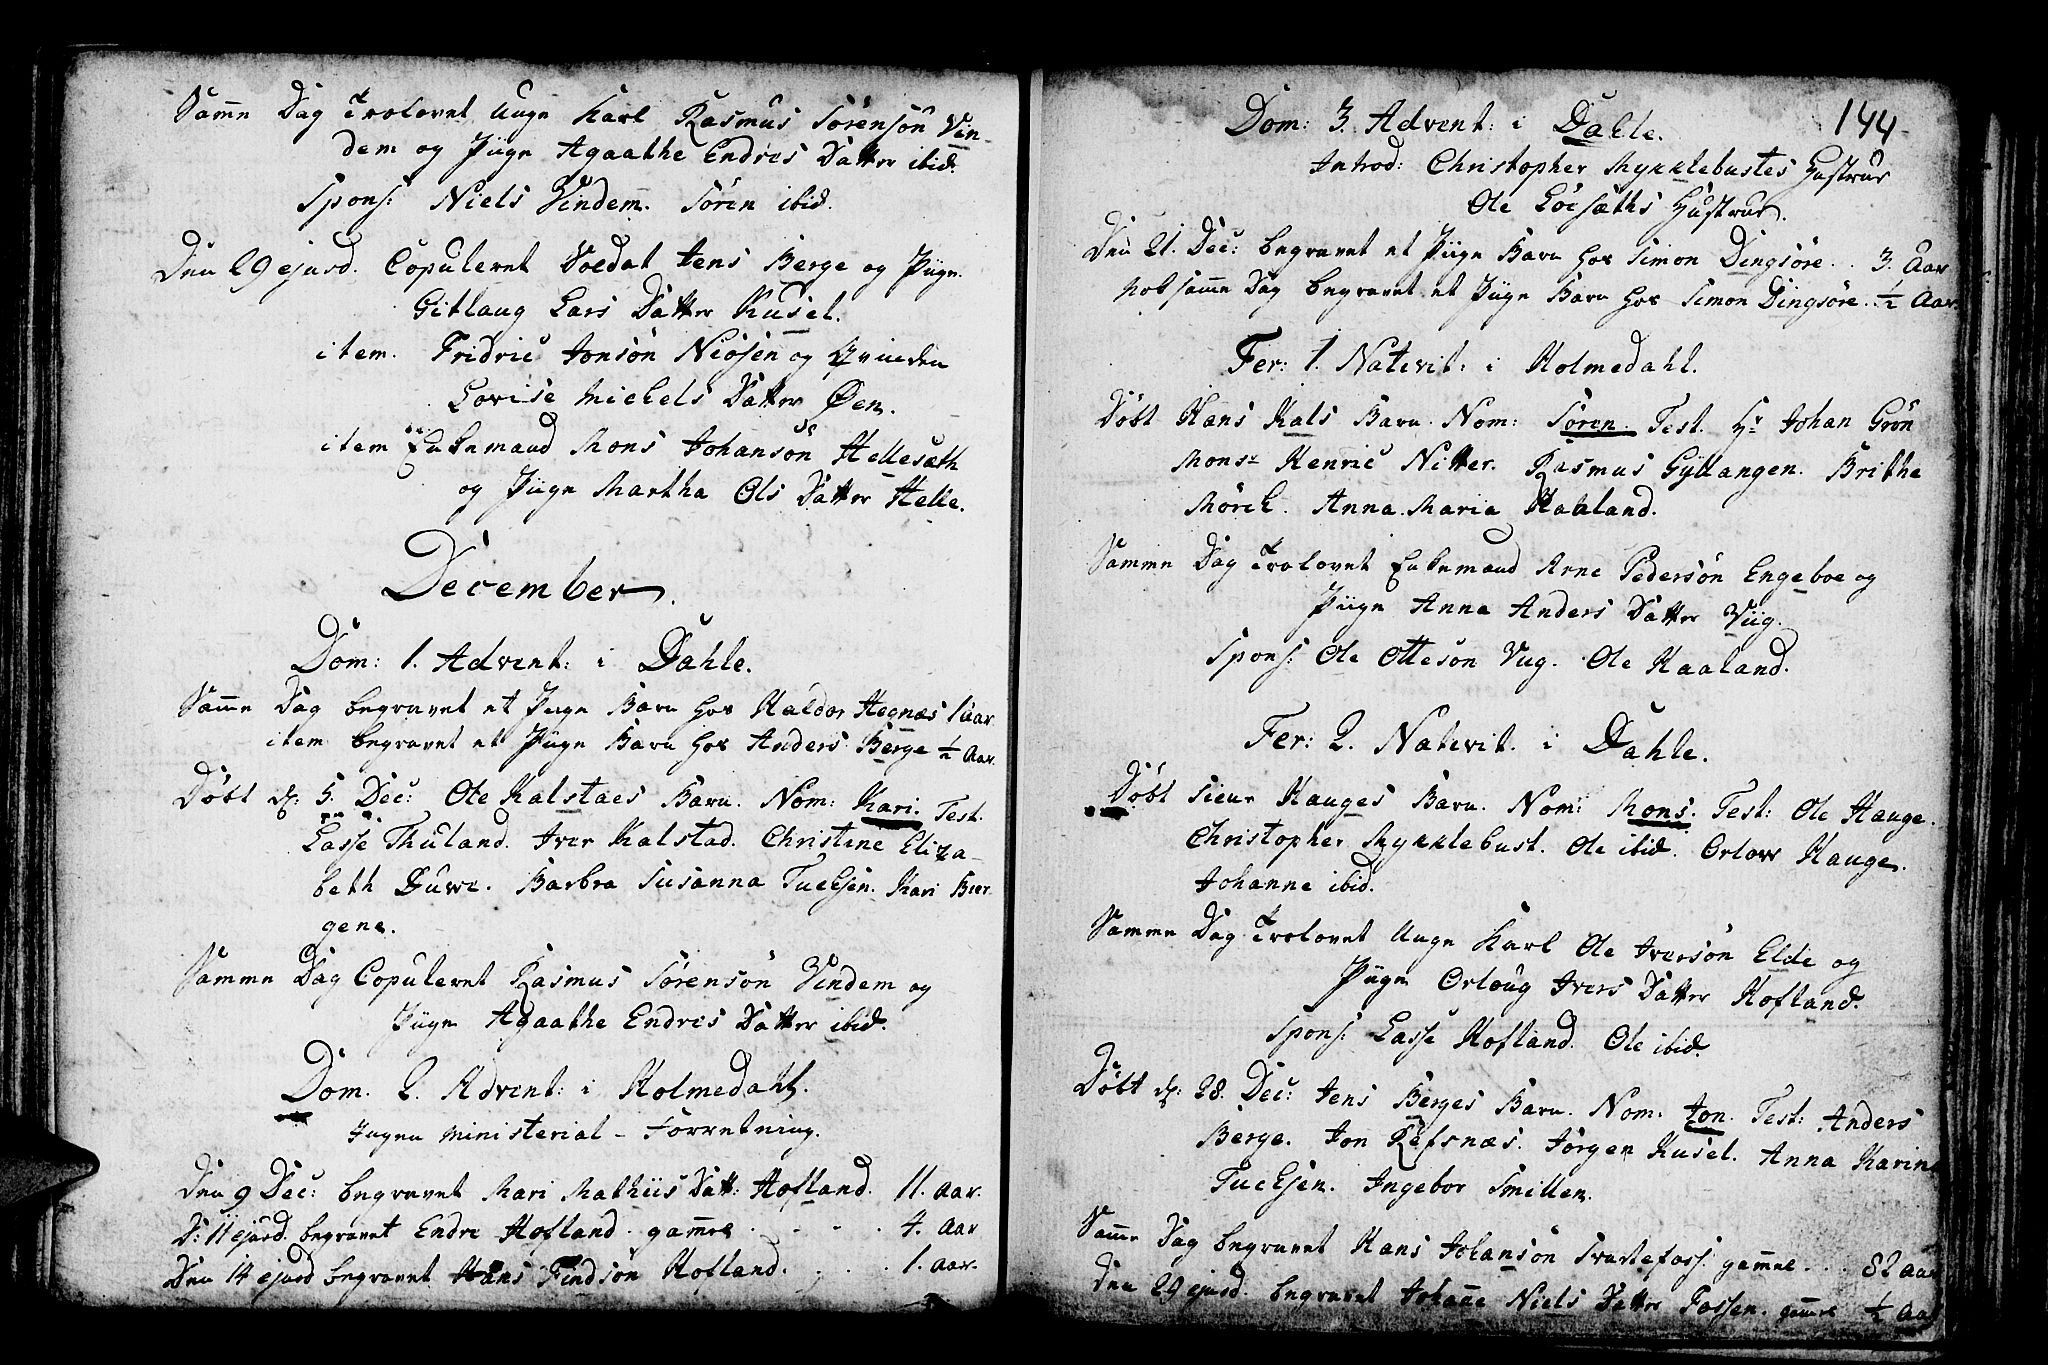 Samme Dag Trolovet Unge Karl Rasmus Sørensøn Vin-
dem og Piige Agaathe Endres Datter ibid.
Spons: Niels Vindem. Sören ibid.
Den 29 ejusd. Copuleret Soldat Jens Berge og Piige
Gitlaug Lars Datter Kusel.
item. Fridric Jonsøn Niösen og Qvinden
Lovise Michels Datter Øen.
item Enkemand Mons Johansøn Hellesæth
og Piige Martha Ols Datter Helle.
December.
Dom: 1. Advent: i Dahle.
Samme Dag begravet et Piige Barn hos Haldor Hegnæs 1 aar
item begravet et Piige Barn hos Anders Berge ½ Aar.
Döbt d: 5. Dec: Ole Kalstaes Barn. Nom: Kari. Test.
Lasse Thuland. Iver Kalstad. Christine Eliza-
beth Duwe. Barbra Susanna Tuchsen. Kari Bier-
gene.
Samme Dag Copuleret Rasmus Sørensøn Vindem og
Piige Agaathe Endres Datter ibid.
Dom. 2. Advent: i Holmedahl.
Ingen Ministerial-Forretning.
Den 9 Dec: begravet Mari Mathiis Datt: Hofland. 11. aar.
D: 11 ejusd. begravet Endre Hofland. gammel . . . . 4. Aar
Den 14 ejusd begravet Hans Findsøn Hofland. . . . 1. aar.
144
Dom: 3. Advent: i Dahle.
Introd: Christopher Mykklebustes Hustrue
Ole Löesæths Hustrue.
Den 21. Dec: begravet et Piige Barn hos Simon Dingsöre . . 3. Aar
nok samme Dag begravet et Piige Barn hos Simon Dingsöre. ½ Aar.
Fer: 1. Nativit: i Holmedahl.
Döbt Hans Kals Barn. Nom: Sören. Test. Hr Johan Grön
Monsr Henric Nitter. Rasmus Gyltangen. Brithe
Mörch. Anna Maria Haaland.
Samme Dag Trolovet Enkemand Arne Pedersøn Engeboe og
Piige Anna Anders Datter Viig.
Spons: Ole Ottesøn Viig. Ole Haaland.
Fer: 2. Nativit. i Dahle.
Döbt Sieur Hauges Barn. Nom: Mons. Test: Ole Hauge.
Christopher Mykklebust. Ole ibid. Orlow Hauge.
Johanne ibid.
Samme Dag Trolovet Unge Karl Ole Iversøn Elde og
Piige Orloug Ivers Datter Hofland.
Spons: Lasse Hofland. Ole ibid.
Döbt d: 28. Dec: Jens Berges Barn. Nom. Jon. Test: Anders
Berge. Jon Refsnæs. Jörgen Kusel. Anna Karina
Tuchsen. Ingebor Smillen.
Samme Dag begravet Hans Johansøn Svartefoss: gammel . . . 82 aar
Den 29 ejusd. begravet Johanne Niels Datter Fossen. gammel ½ Aar